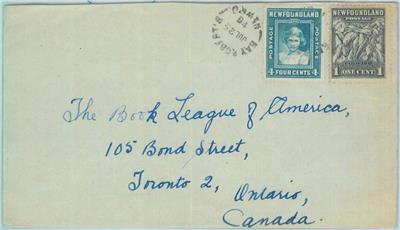 NEWFOUNDLAND
POSTAGE
POSTAGE
4 FOUR CENTS 4
NEWFOUNDLAND
POSTAGE
1 ONE CENT 1
The Book League of America,
105 Bond Street,
Toronto 2, Ontario,
Canada.